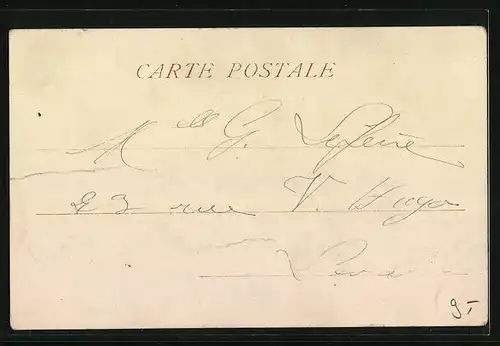 CARTE POSTALE
Mlle G. Lefevre
23 rue V. Hugo
9.-